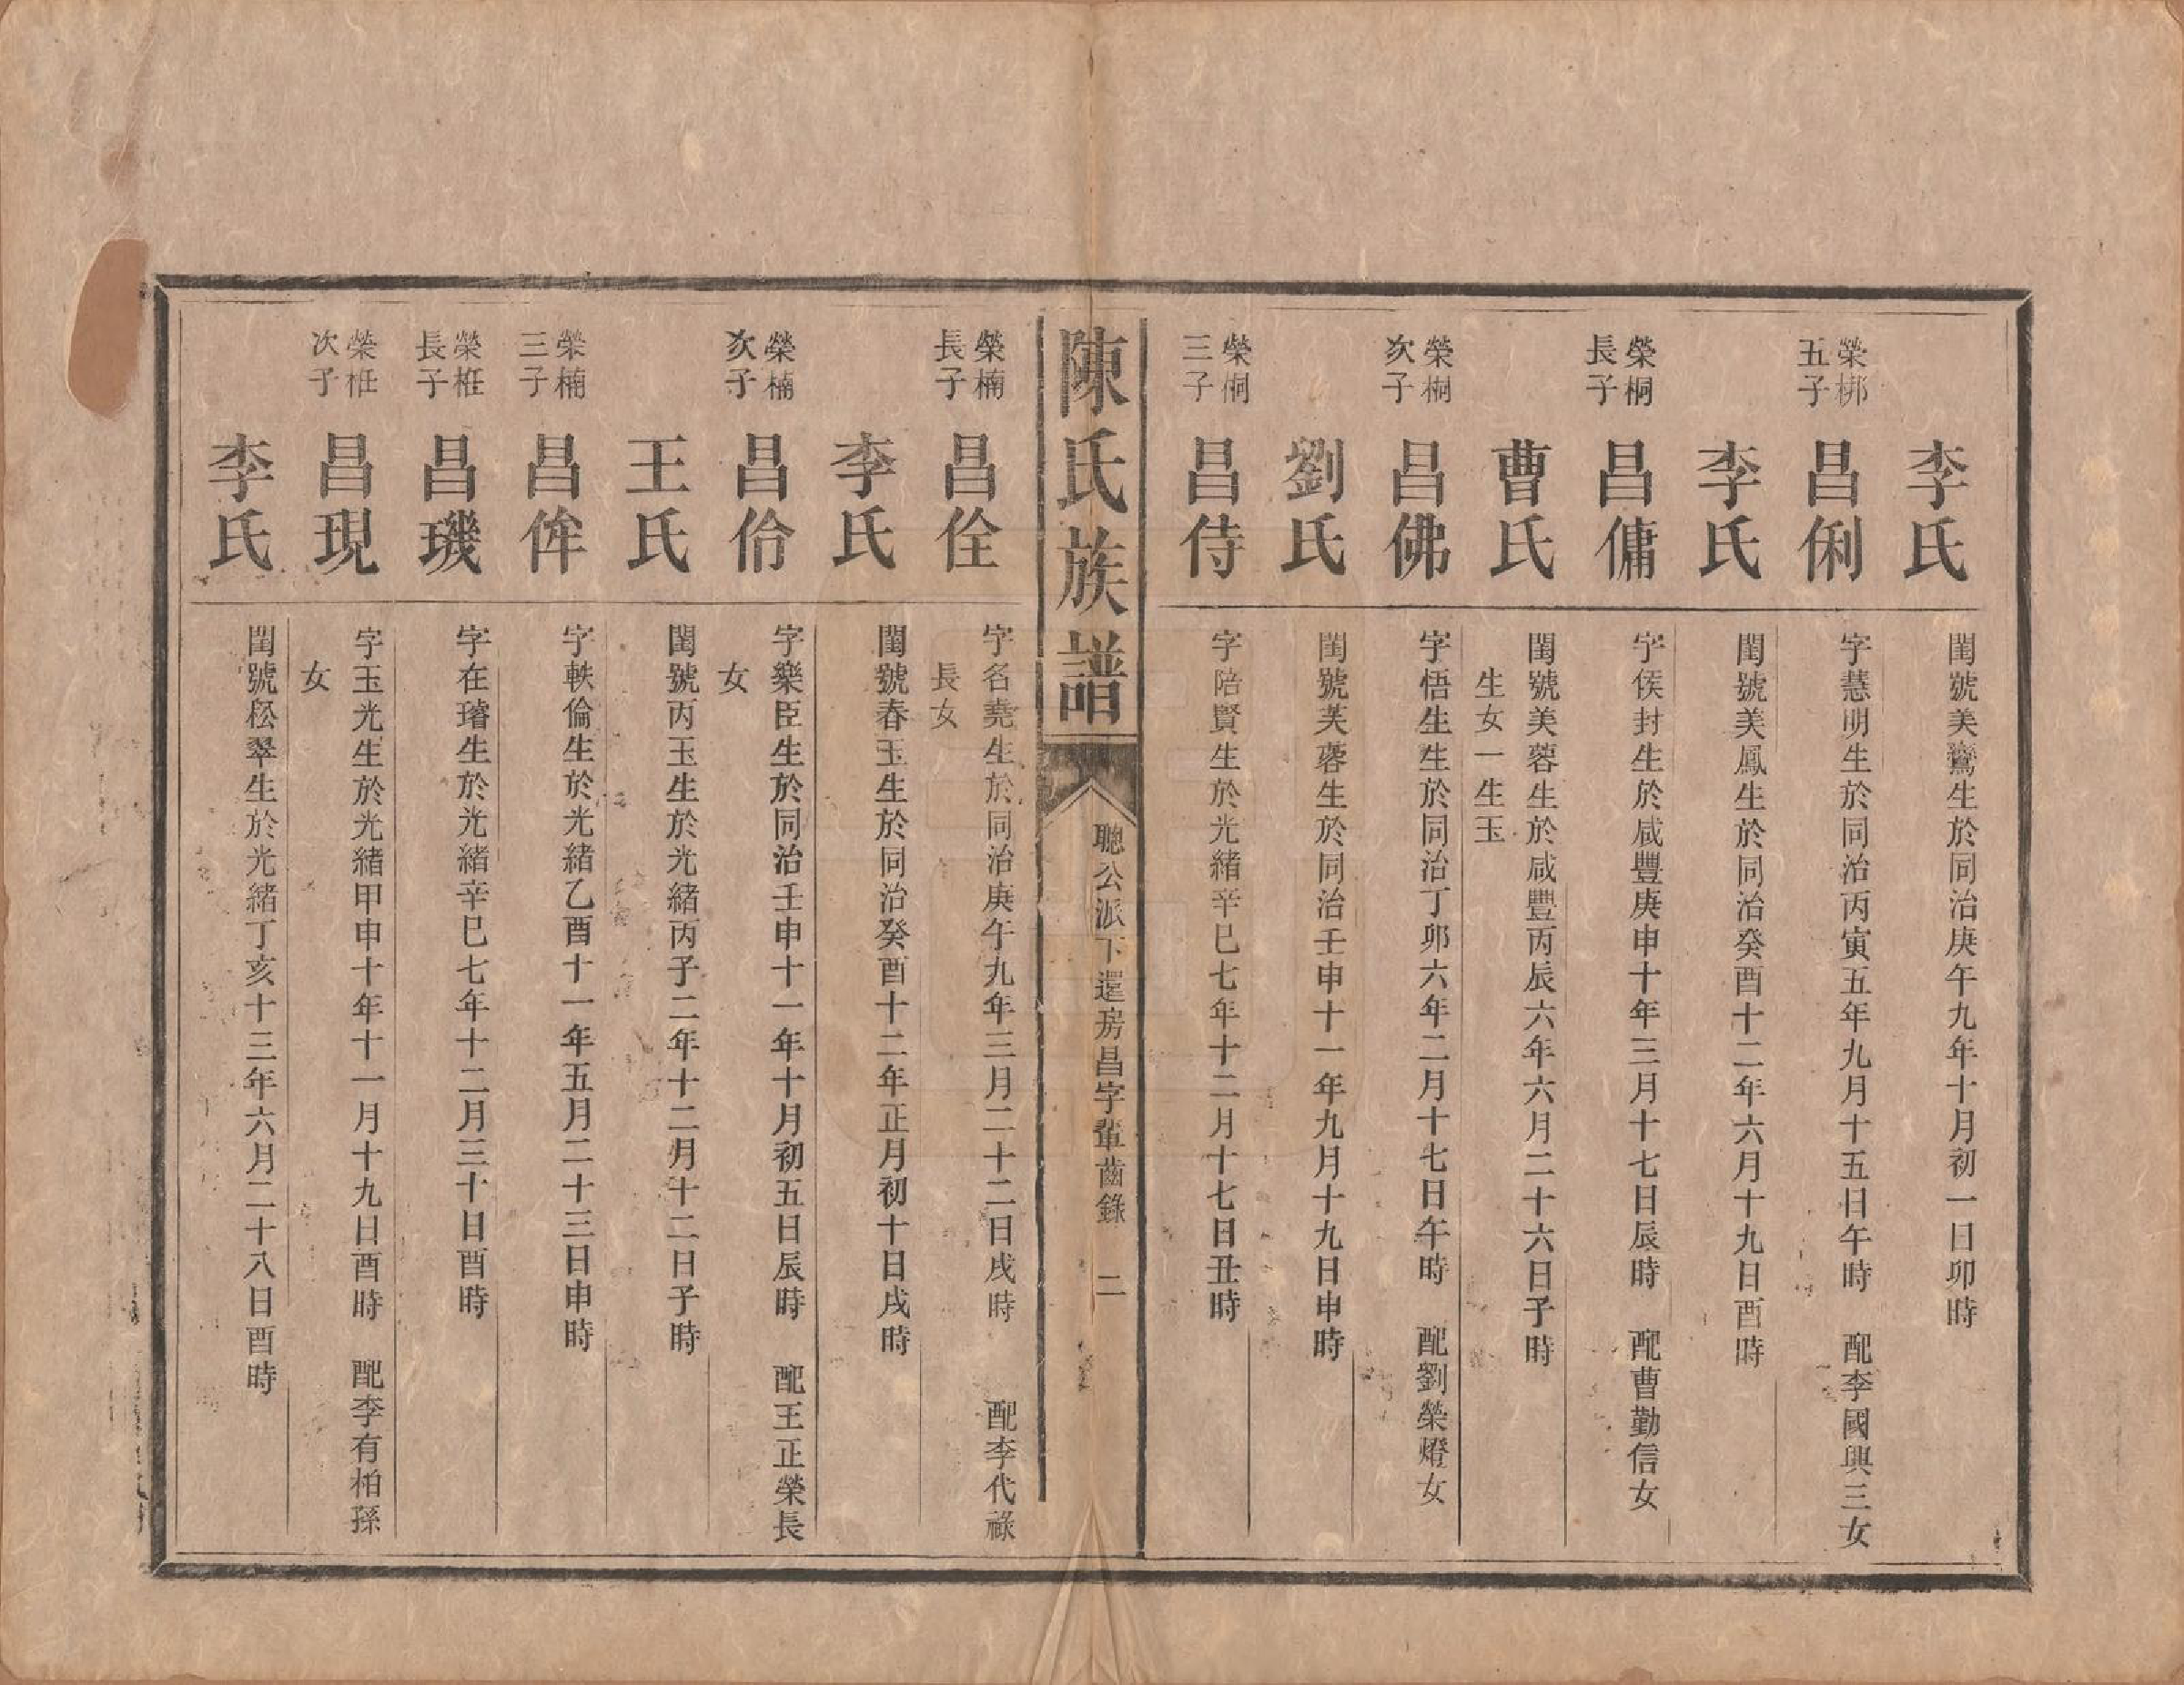 李氏
閨號美鸞生於同治庚午九年十月初一日卯時
榮梆五子
昌俐
字慧明生於同治丙寅五年九月十五日午時　配李國興三女
李氏
閨號美鳳生於同治癸酉十二年六月十九日酉時
榮桐長子
昌傭
字侯封生於咸豐庚申十年三月十七日辰時　配曹勤信女
曹氏
閨號美蓉生於咸豐丙辰六年六月二十六日子時
生女一生玉
榮桐次子
昌佛
字悟生生於同治丁卯六年二月十七日午時　配劉榮燈女
劉氏
閨號芙蓉生於同治壬申十一年九月十九日申時
榮桐三子
昌侍
字陪賢生於光緒辛巳七年十二月十七日丑時
陳氏族譜
聰公派下還房昌字輩齒錄　二
榮楠長子
昌佺
字名堯生於同治庚午九年三月二十二日戌時　配李代祿
長女
李氏
閨號春玉生於同治癸酉十二年正月初十日戌時
榮楠次子
昌伶
字樂臣生於同治壬申十一年十月初五日辰時　配王正榮長
女
王氏
閨號丙玉生於光緒丙子二年十二月十二日子時
榮楠三子
昌侔
字軼倫生於光緒乙酉十一年五月二十三日申時
榮桩長子
昌璣
字在璿生於光緒辛巳七年十二月三十日酉時
榮桩次子
昌現
字玉光生於光緒甲申十年十一月十九日酉時　配李有柏孫
女
李氏
閨號崧翠生於光緒丁亥十三年六月二十八日酉時